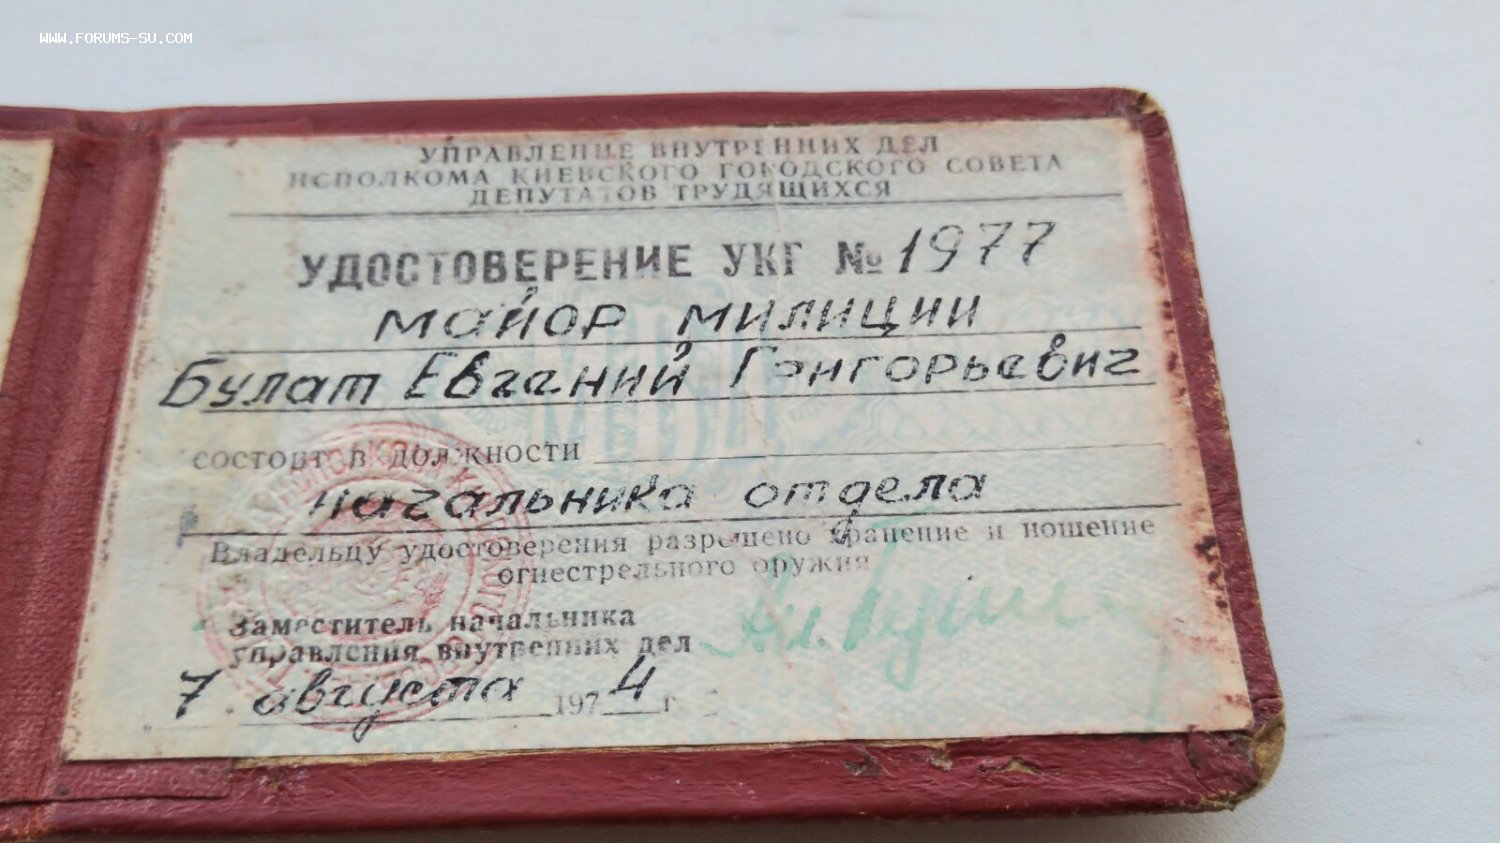 WWW.FORUMS-SU.COM
УПРАВЛЕНИЕ ВНУТРЕННИХ ДЕЛ
ИСПОЛКОМА КИЕВСКОГО ГОРОДСКОГО СОВЕТА
ДЕПУТАТОВ ТРУДЯЩИХСЯ
УДОСТОВЕРЕНИЕ УКГ № 1977
майор милиции
Булат Евгений Григорьевич
состоит в должности
начальника отдела
Владельцу удостоверения разрешено хранение и ношение
огнестрельного оружия
Заместитель начальника
управления внутренних дел
7 августа 1974 г.